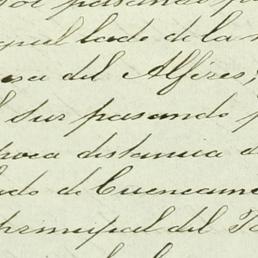 por pasando por
aquel lado de la
casa del Alféres,
sur pasando
poca distancia
lado de Cuencame
principal del